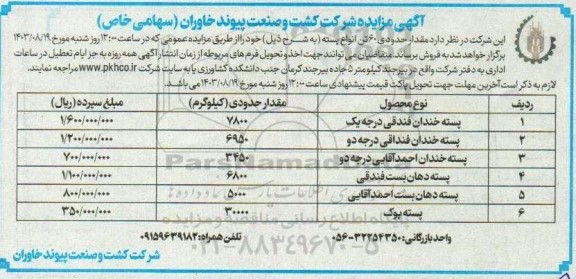 آگهی مزایده شرکت کشت و صنعت پیوند خاوران (سهامی خاص)
این شرکت در نظر دارد مقدار حدودی ۶۰ تن انواع پسته (به شرح ذیل) خود را از طریق مزایده عمومی که در ساعت ۱۲:۰۰ روز شنبه مورخ ۱۴۰۳/۰۸/۱۹
برگزار خواهد شد به فروش برساند. متقاضیان می توانند جهت اخذ و تحویل فرم های مربوطه از زمان انتشار آگهی همه روزه به جز ایام تعطیل در ساعات
اداری به دفتر شرکت واقع در بیرجند کیلومتر ۵ جاده بیرجند کرمان جنب دانشکده کشاورزی یا به سایت شرکت www.pkhco.ir مراجعه نمایند.
لازم به ذکر است آخرین مهلت جهت تحویل پاکت قیمت پیشنهادی ساعت ۱۲:۰۰ روز شنبه مورخ ۱۴۰۳/۰۸/۱۹ می باشد.
ردیف نوع محصول مقدار حدودی (کیلوگرم) مبلغ سپرده (ریال)
۱ پسته خندان فندقی درجه یک ۷۸۰۰ ۱/۶۰۰/۰۰۰/۰۰۰
۲ پسته خندان فندقی درجه دو ۶۹۵۰ ۱/۲۰۰/۰۰۰/۰۰۰
۳ پسته خندان احمدآقایی درجه دو ۳۴۵۰ ۷۰۰/۰۰۰/۰۰۰
۴ پسته دهان بست فندقی ۶۸۰۰ ۱/۱۰۰/۰۰۰/۰۰۰
۵ پسته دهان بست احمدآقایی ۵۰۰۰ ۸۰۰/۰۰۰/۰۰۰
۶ پسته پوک ۳۰۰۰۰ ۳۵۰/۰۰۰/۰۰۰
واحد بازرگانی: ۳۲۲۵۴۳۵۰-۰۵۶ تلفن همراه: ۰۹۱۵۹۶۳۹۱۸۲
۰۲۱-۸۸۳۴۹۶۷۰-۵
شرکت کشت و صنعت پیوند خاوران